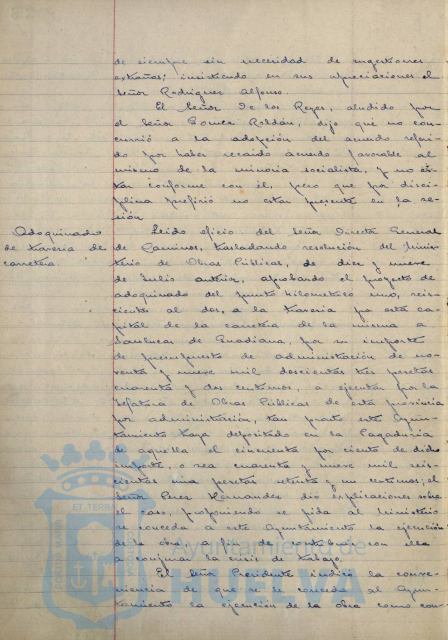 de siempre sin necesidad de sugestiones
extrañas; insistiendo en sus apreciaciones el
Señor Rodriguez Alfonso.
El Señor De los Reyes, aludido por
el Señor Gomez Roldán, dijo que no con-
currió a la adopción del acuerdo referi-
do por haber recaido acuerdo favorable al
mismo de la minoria socialista, y no es-
tar conforme con él, pero que por disci-
plina prefirió no estar presente en la se-
sión.
Adoquinado
de travesia de
carretera.
Leido oficio del Señor Director General
de Caminos, trasladando resolución del Minis-
terio de Obras Públicas, de diez y nueve
de Julio anterior, aprobando el proyecto de
adoquinado del punto kilometrico uno, seis-
cientos al dos, a la travesia por esta ca-
pital de la carretera de la misma a
Sanlucar de Guadiana, por su importe
de presupuesto de administración de no-
venta y nueve mil doscientas tres pesetas
cuarenta y dos centimos, a ejecutar por la
Jefatura de Obras Públicas de esta provincia
por administración, tan pronto este Ayun-
tamiento haya depositado en la Pagaduria
de aquella el cincuenta por ciento de dicho
importe, o sea cuarenta y nueve mil seis-
cientas una pesetas setenta y un centimos, el
Señor Perez Hernandez dió explicaciones sobre
el caso, proponiendo se pida al Ministerio
se conceda a este Ayuntamiento la ejecución
de la obra, a fin de contribuir con ella
a conjurar la crisis de trabajo.
El Señor Presidente indicó la conve-
niencia de que se le conceda al Ayun-
tamiento la ejecución de la obra como con-
Ayuntamiento de
HUELVA